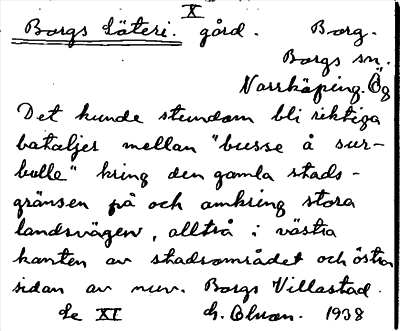 X
Borgs Säteri. gård. Borg.
Borgs sn.
Norrköping. Ög
Det kunde stundom bli riktiga
bataljer mellan "busse å sur-
bulle" kring den gamla stads-
gränsen på och omkring stora
landsvägen, alltså i västra
kanten av stadsområdet och östra
sidan av nuv. Borgs Villastad.
Se XI 1938